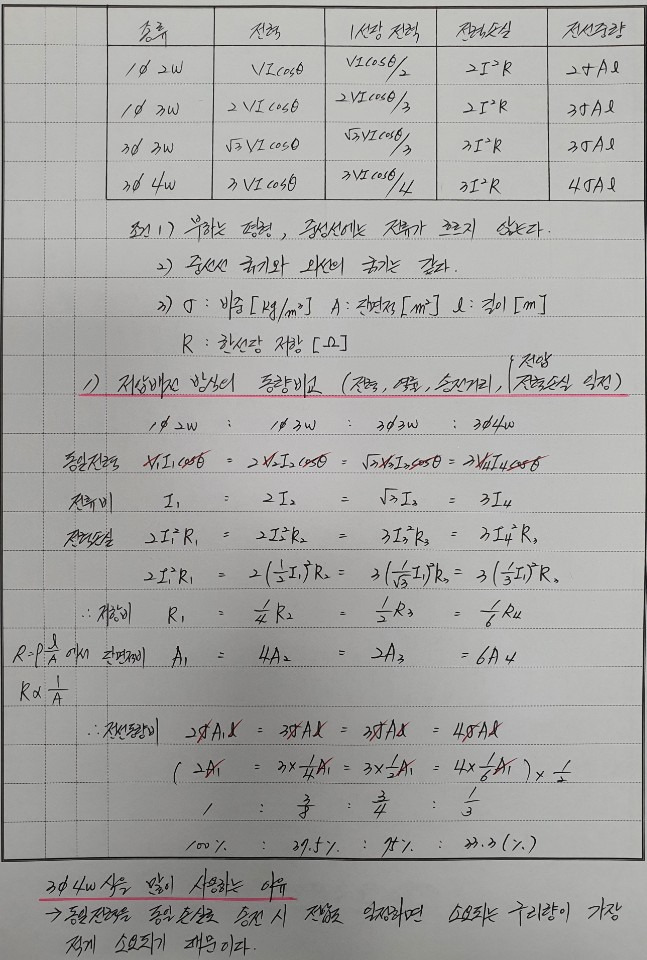 종류 전력 1선당 전력 전력손실 전선중량
1∅ 2w VIcosθ VIcosθ/2 2I²R 2σAl
1∅ 3w 2VIcosθ 2VIcosθ/3 2I²R 3σAl
3∅ 3w √3VIcosθ √3VIcosθ/3 3I²R 3σAl
3∅ 4w 3VIcosθ 3VIcosθ/4 3I²R 4σAl
조건 1) 부하는 평형, 중성선에는 전류가 흐르지 않는다.
2) 중선선 굵기와 외선의 굵기는 같다.
3) σ : 비중 [kg/m³] A : 단면적 [m²] l : 길이 [m]
R : 한선당 저항 [Ω]
1) 저압배전 방식의 동량비교 (전력, 역률, 송전거리, 전압 전력손실 일정)
1∅ 2w : 1∅ 3w : 3∅3w : 3∅4w
동일전력 V₁I₁cosθ = 2V₂I₂cosθ = √3V₃I₃cosθ = 3V₄I₄cosθ
전류비 I₁ = 2I₂ = √3I₃ = 3I₄
전력손실 2I₁²R₁ = 2I₂²R₂ = 3I₃²R₃ = 3I₄²R₃
2I₁²R₁ = 2(1/2 I₁)²R₂ = 3(1/√3 I₁)²R₃ = 3(1/3 I₁)²R₃
∴ 저항비 R₁ = 1/4 R₂ = 1/2 R₃ = 1/6 R₄
R=ρ l/A 에서 단면적비 A₁ = 4A₂ = 2A₃ = 6A₄
R∝ 1/A
∴ 전선동량비 2σA₁l = 3σAl = 3σAl = 4σAl
( 2A₁ = 3×1/4 A₁ = 3×1/2 A₁ = 4×1/6 A₁ ) × 1/2
1 : 3/8 : 3/4 : 1/3
100% : 37.5% : 75% : 33.3 (%)
3∅4w식을 많이 사용하는 이유
→ 동일전력을 동일 손실로 송전 시 전압도 일정하면 소요되는 구리량이 가장
적게 소요되기 때문이다.